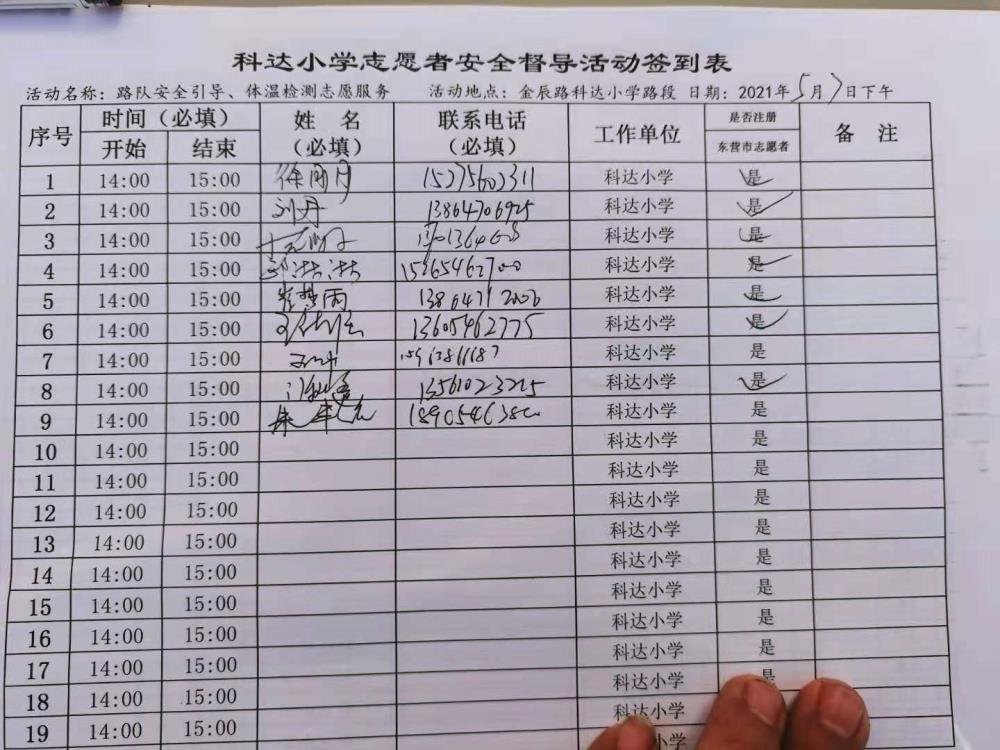 科达小学志愿者安全督导活动签到表
活动名称：路队安全引导、体温检测志愿服务 活动地点：金辰路科达小学路段 日期：2021年5月7日下午
序号 时间（必填） 姓 名（必填） 联系电话（必填） 工作单位 是否注册东营市志愿者 备 注
开始 结束
1 14:00 15:00 科达小学 是
2 14:00 15:00 刘丹 13864706925 科达小学 是
3 14:00 15:00 科达小学 是
4 14:00 15:00 科达小学 是
5 14:00 15:00 科达小学 是
6 14:00 15:00 13605462775 科达小学 是
7 14:00 15:00 科达小学 是
8 14:00 15:00 13561023225 科达小学 是
9 14:00 15:00 科达小学 是
10 14:00 15:00 科达小学 是
11 14:00 15:00 科达小学 是
12 14:00 15:00 科达小学 是
13 14:00 15:00 科达小学 是
14 14:00 15:00 科达小学 是
15 14:00 15:00 科达小学 是
16 14:00 15:00 科达小学 是
17 14:00 15:00 科达小学 是
18 14:00 15:00 科达小学 是
19 14:00 15:00 科达小学
小学